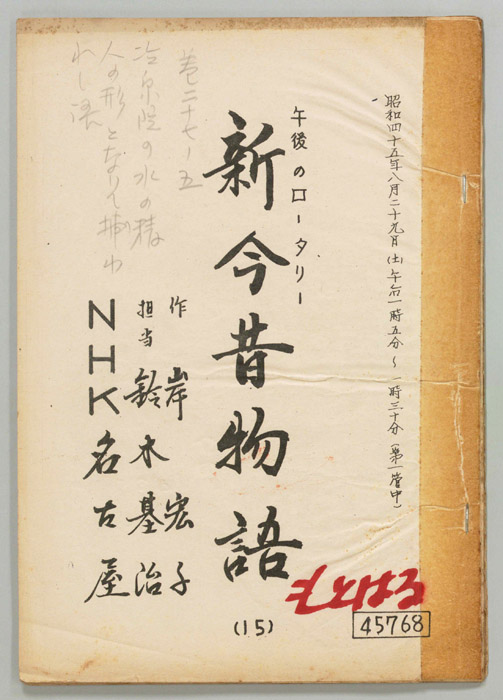 昭和四十五年八月二十九日(土)午后一時五分〜一時三十分(第一管中)
午後のロータリー
新今昔物語
(15)
作 岸 宏子
担当 鈴木基治
NHK名古屋
巻二十七ノ五
冷泉院の水の精
人の形となりて捕わ
れし語
もとはる
45768